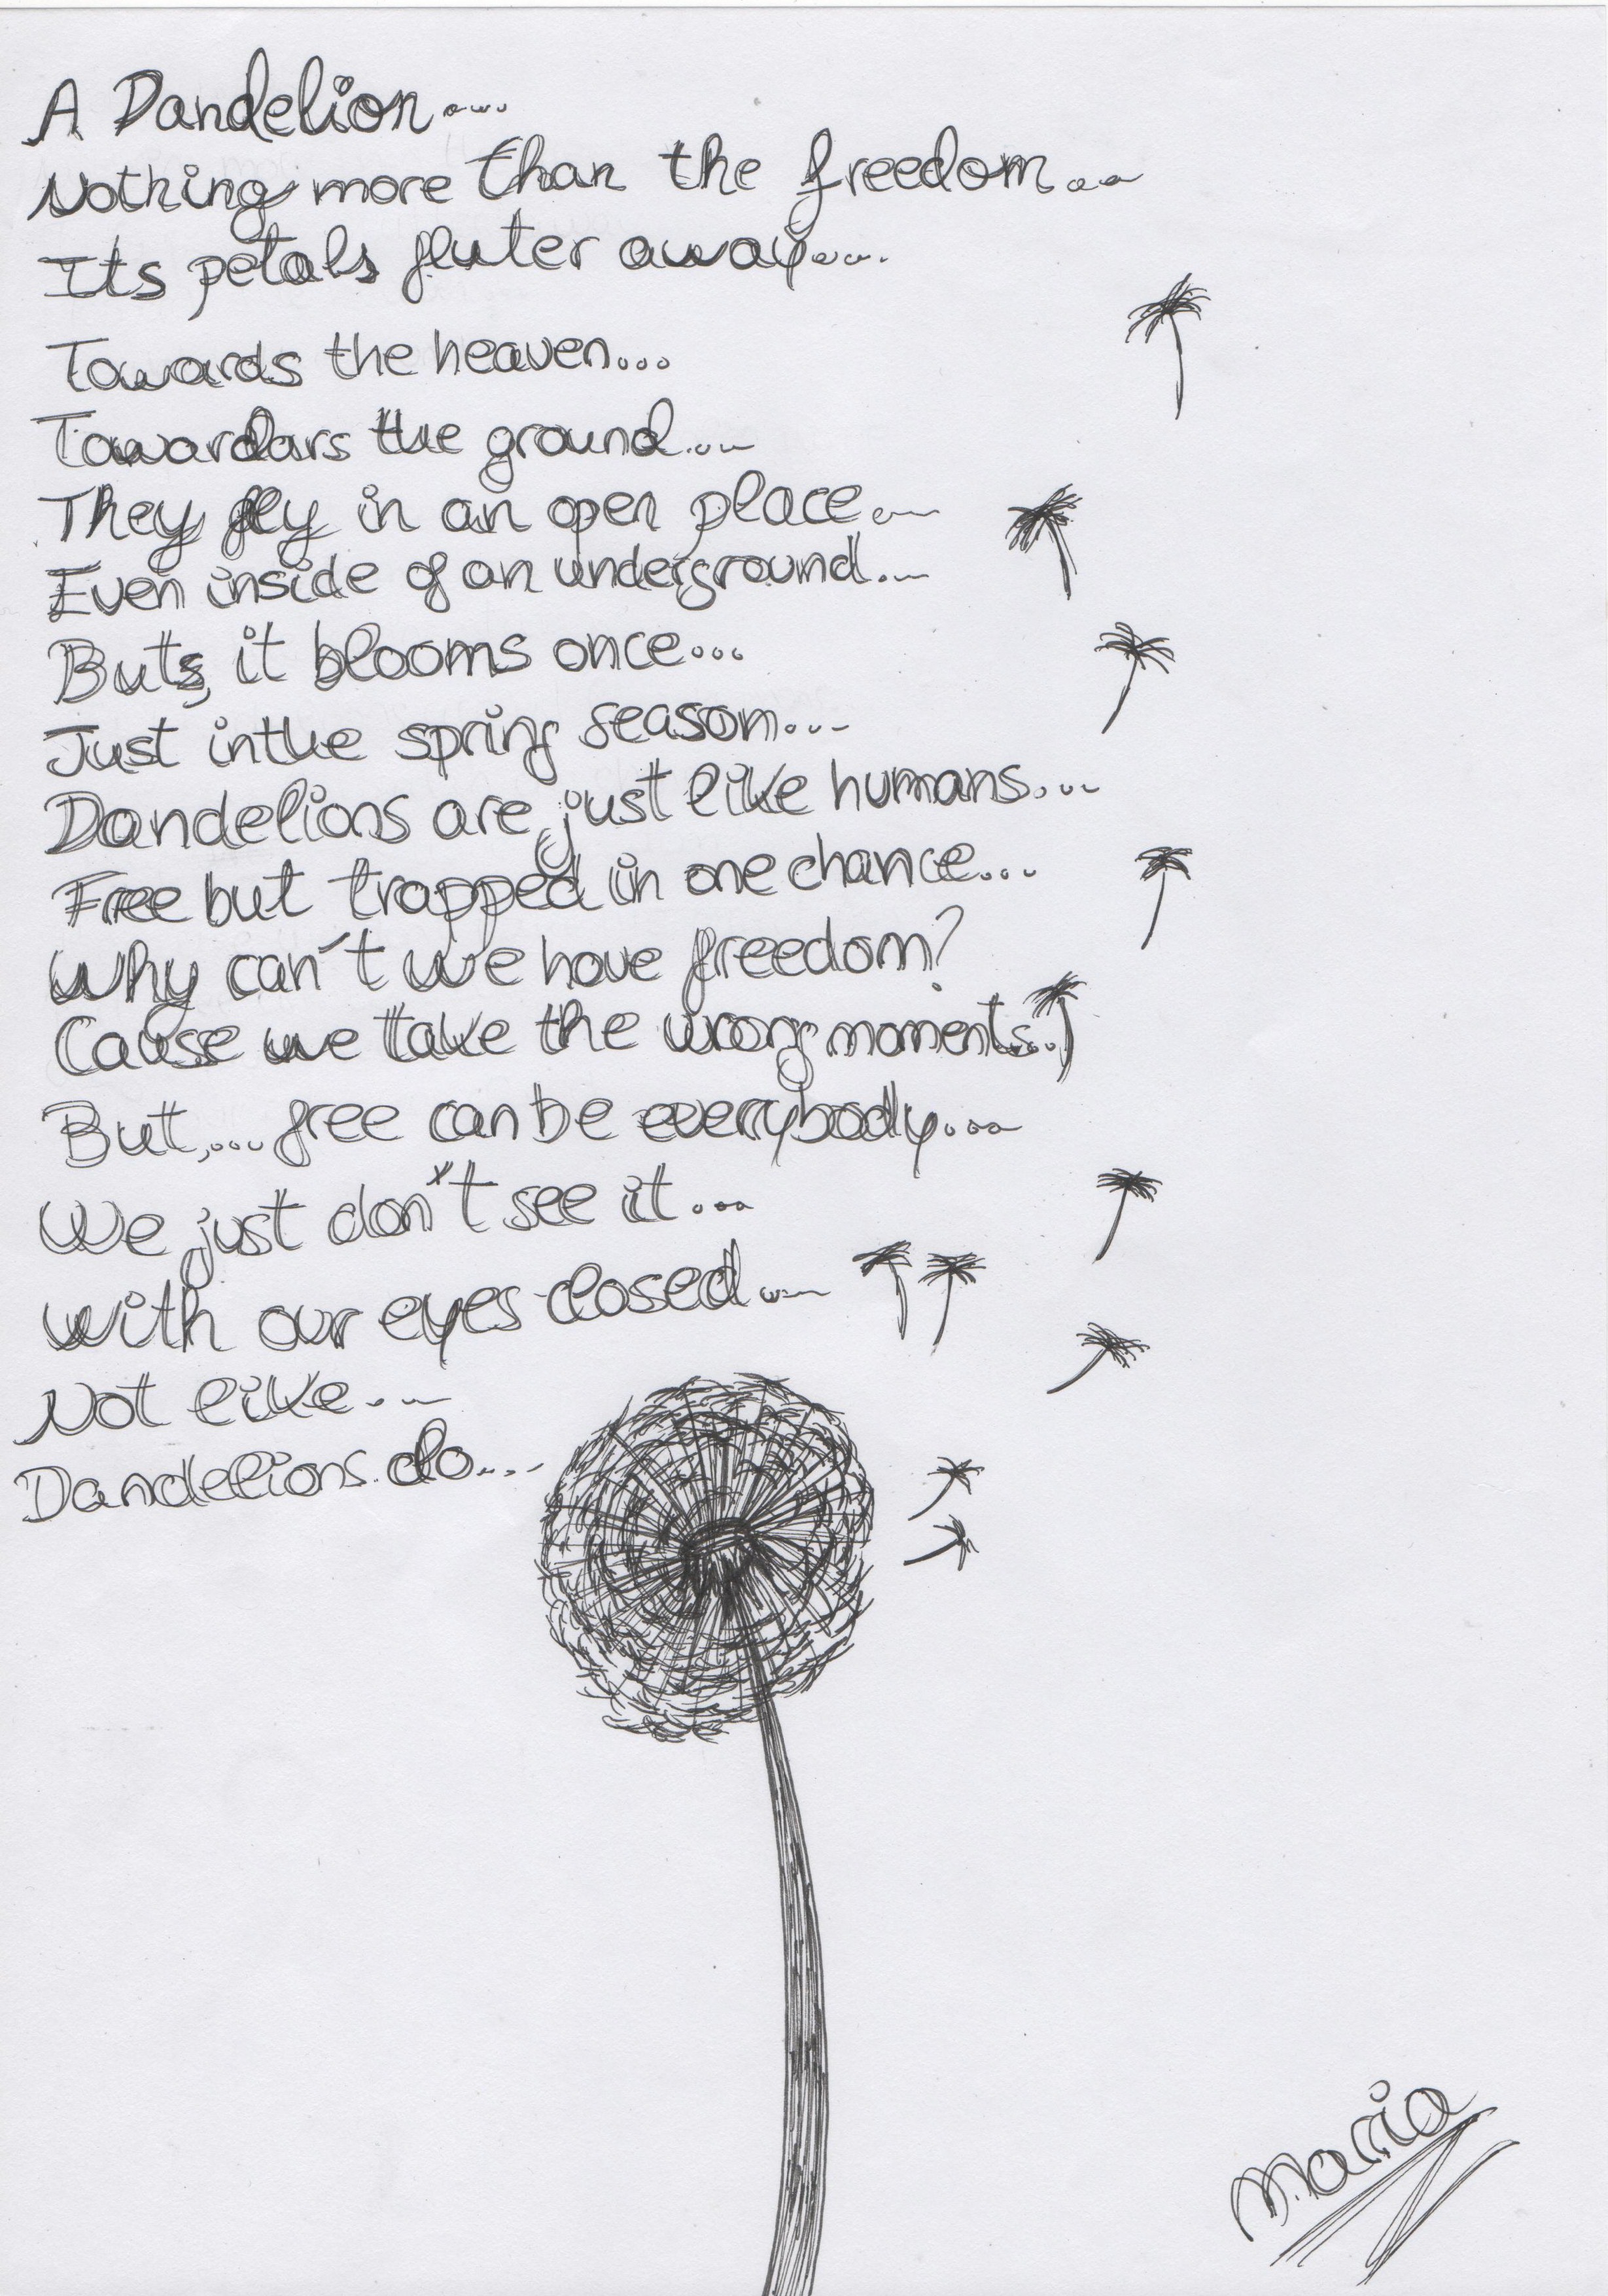 A Dandelion....
Nothing more than the freedom...
Its petals fluter away....
Towards the heaven...
Towardars the ground....
They fly in an open place...
Even inside of an underground...
But, it blooms once...
Just in the spring season....
Dandelions are just like humans....
Free but trapped in one chance....
Why can't we have freedom?
Cause we take the wrong moments..
But,... free can be everybody....
We just don't see it...
With our eyes closed....
Not like...
Dandelions do....
Maria